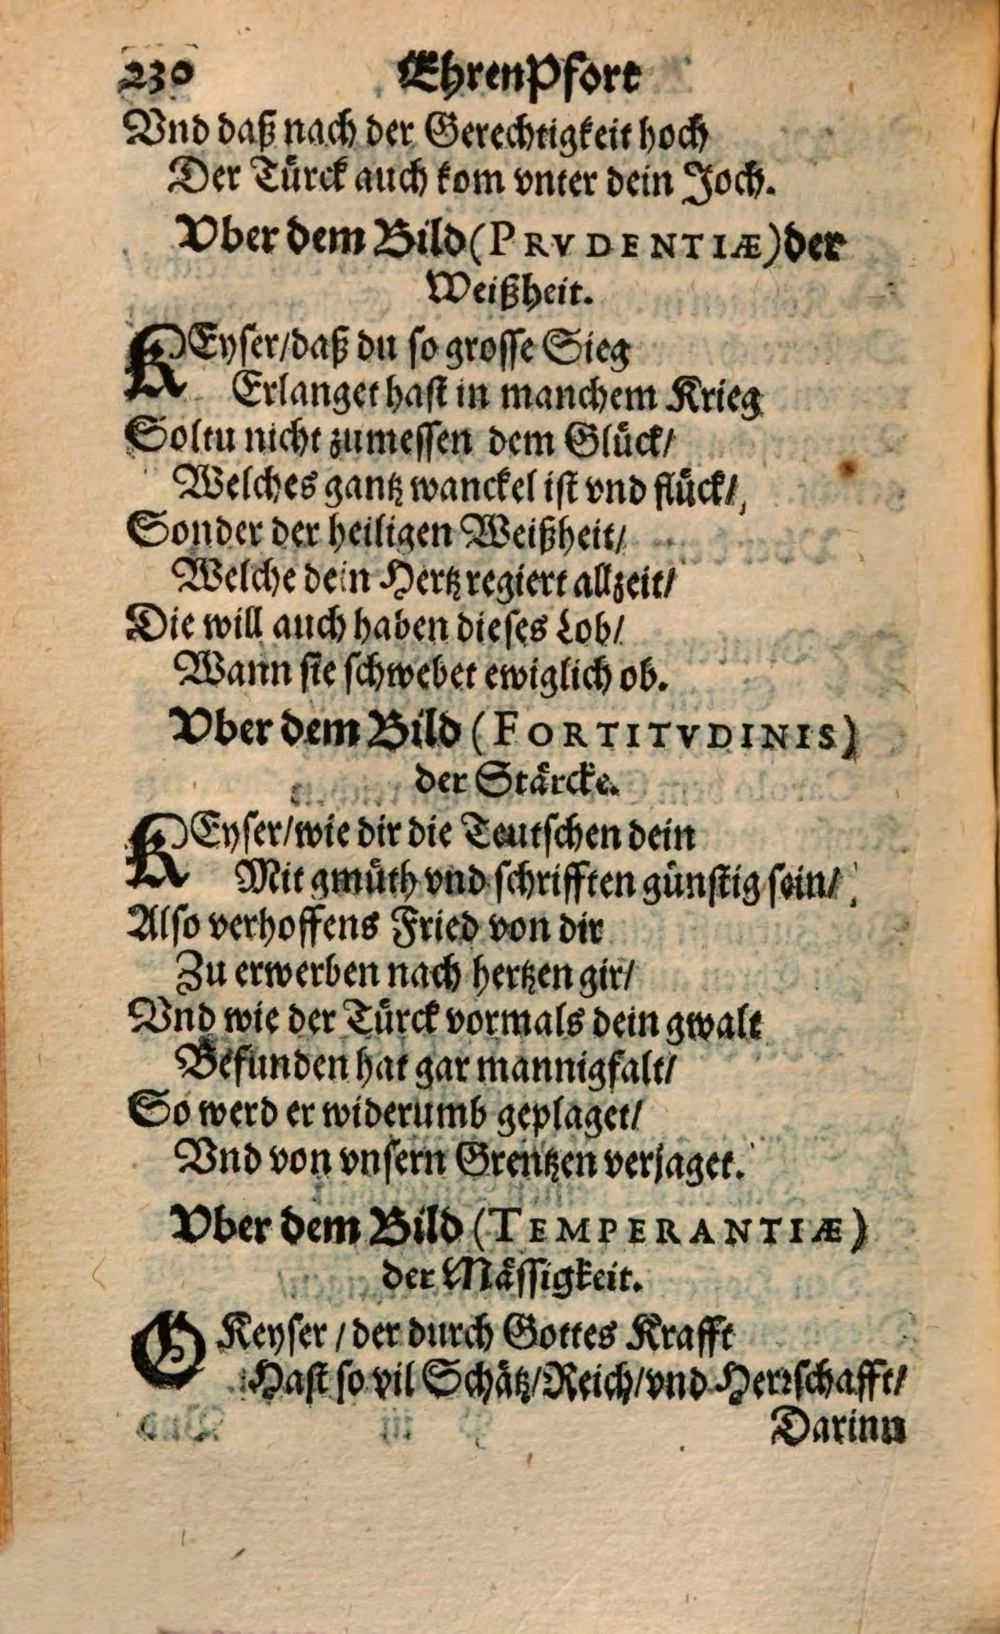 230 EhrenPfort
Vnd daß nach der Gerechtigkeit hoch
Der Tuͤrck auch kom vnter dein Joch.
Vber dem Bild (PRVDENTIÆ) der
Weißheit.
KEyser/ daß du so grosse Sieg
Erlanget hast in manchem Krieg
Soltu nicht zumessen dem Gluͤck/
Welches gantz wanckel ist vnd fluͤck/
Sonder der heiligen Weißheit/
Welche dein Hertz regiert allzeit/
Die will auch haben dieses Lob/
Wann sie schwebet ewiglich ob.
Vber dem Bild (FORTITVDINIS)
der Staͤrcke.
KEyser/ wie dir die Teutschen dein
Mit gmuͤth vnd schrifften guͤnstig sein/
Also verhoffens Fried von dir
Zu erwerben nach hertzen gir/
Vnd wie der Tuͤrck vormals dein gwalt
Befunden hat gar mannigfalt/
So werd er widerumb geplaget/
Vnd von vnsern Grentzen verjaget.
Vber dem Bild (TEMPERANTIÆ)
der Maͤssigkeit.
O Keyser / der durch Gottes Krafft
Hast so vil Schaͤtz/ Reich/ vnd Herrschafft/
Darinn